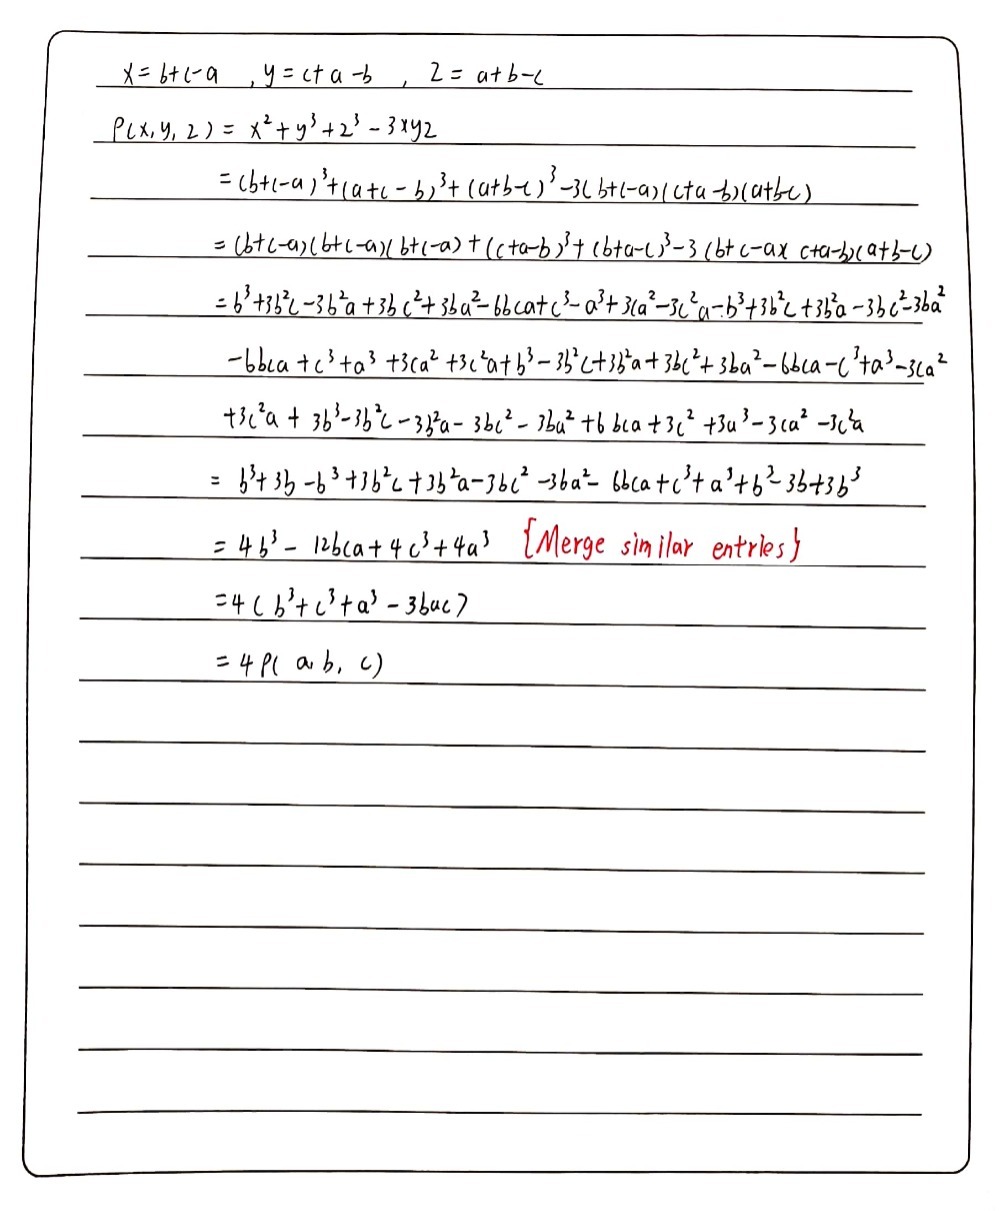 x = b+c-a , y = c+a-b , z = a+b-c
P(x, y, z) = x² + y³ + z³ - 3xyz
= (b+c-a)³ + (a+c-b)³ + (a+b-c)³ - 3(b+c-a)(c+a-b)(a+b-c)
= (b+c-a)(b+c-a)(b+c-a) + (c+a-b)³ + (b+a-c)³ - 3(b+c-a)(c+a-b)(a+b-c)
= b³+3b²c-3b²a+3bc²+3ba²-6bca+c³-a³+3ca²-3c²a-b³+3b²c+3b²a-3bc²-3ba²
-6bca+c³+a³+3ca²+3c²a+b³-3b²c+3b²a+3bc²+3ba²-6bca-c³+a³-3ca²
+3c²a+3b³-3b²c-3b²a-3bc²-3ba²+6bca+3c²+3a³-3ca²-3c²a
= b³+3b-b³+3b²c+3b²a-3bc²-3ba²-6bca+c³+a³+b³-3b+3b³
= 4b³-12bca+4c³+4a³ {Merge similar entries}
= 4(b³+c³+a³-3bac)
= 4P(a, b, c)